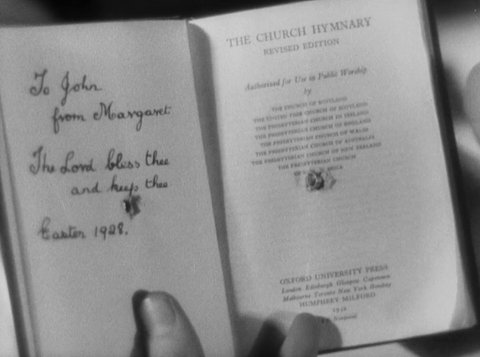 To John
from Margaret
The Lord bless thee
and keep thee
Easter 1928.
THE CHURCH HYMNARY
REVISED EDITION
Authorised for Use in Public Worship
by
THE CHURCH OF SCOTLAND
THE UNITED FREE CHURCH OF SCOTLAND
THE PRESBYTERIAN CHURCH IN IRELAND
THE PRESBYTERIAN CHURCH OF ENGLAND
THE PRESBYTERIAN CHURCH OF WALES
THE PRESBYTERIAN CHURCH OF AUSTRALIA
THE PRESBYTERIAN CHURCH OF NEW ZEALAND
THE PRESBYTERIAN CHURCH
OXFORD UNIVERSITY PRESS
London Edinburgh Glasgow Capetown
Melbourne Toronto New York Bombay
HUMPHREY MILFORD